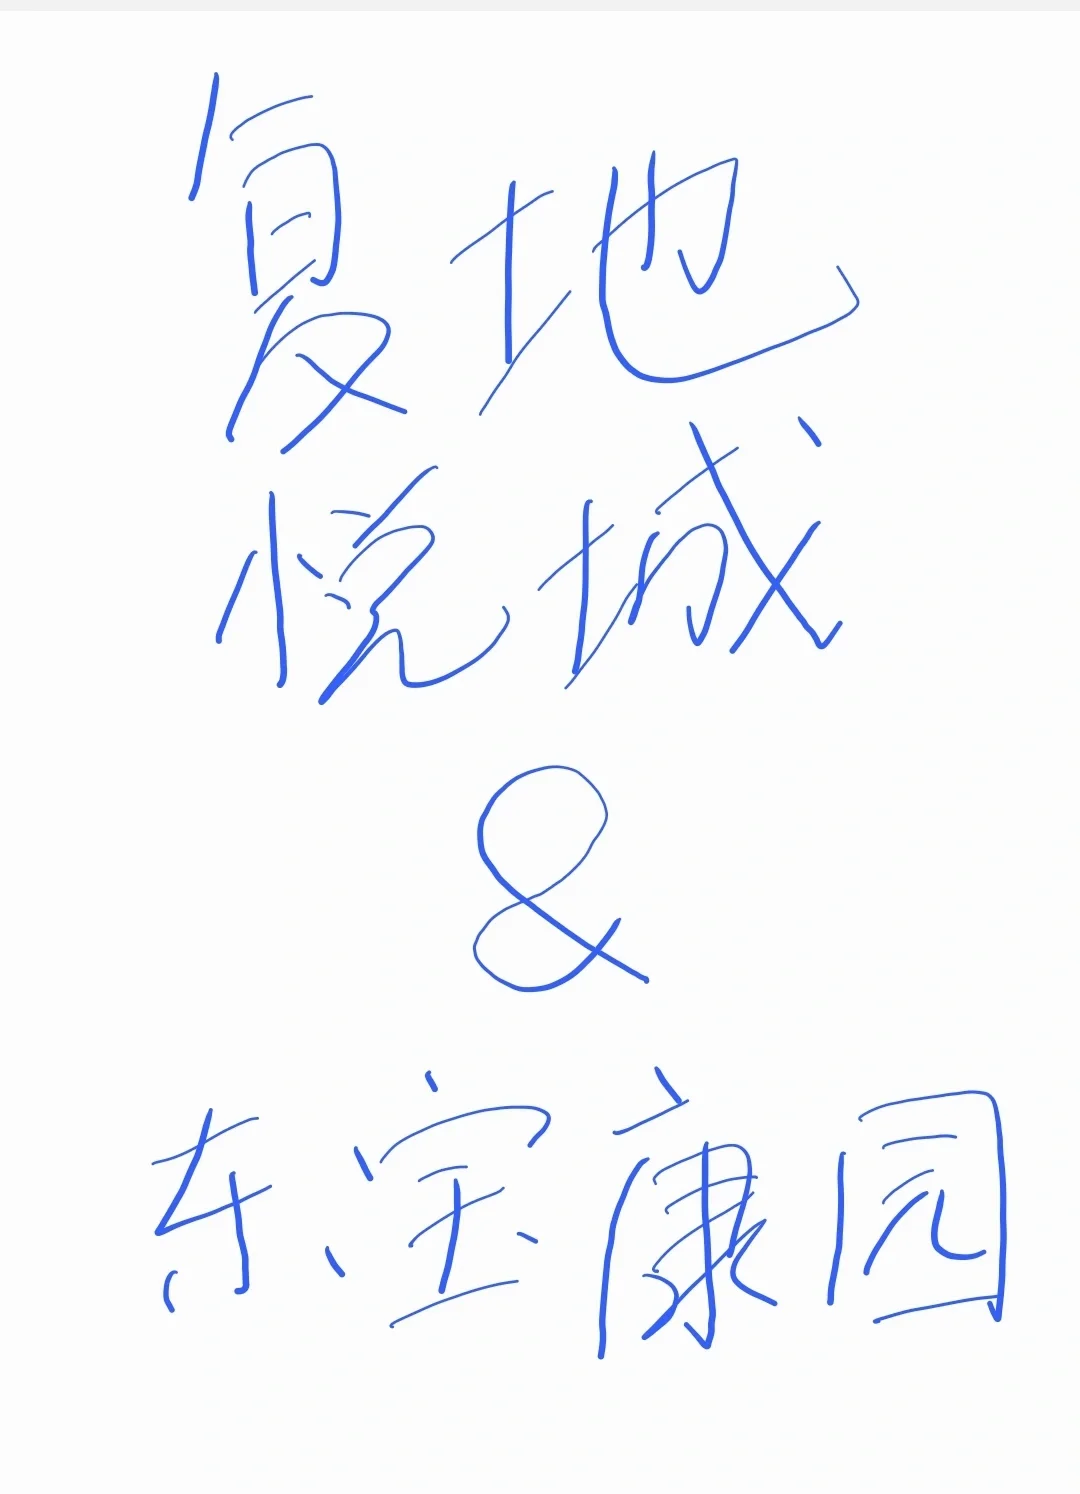 复地
悦城
&
东宝康园